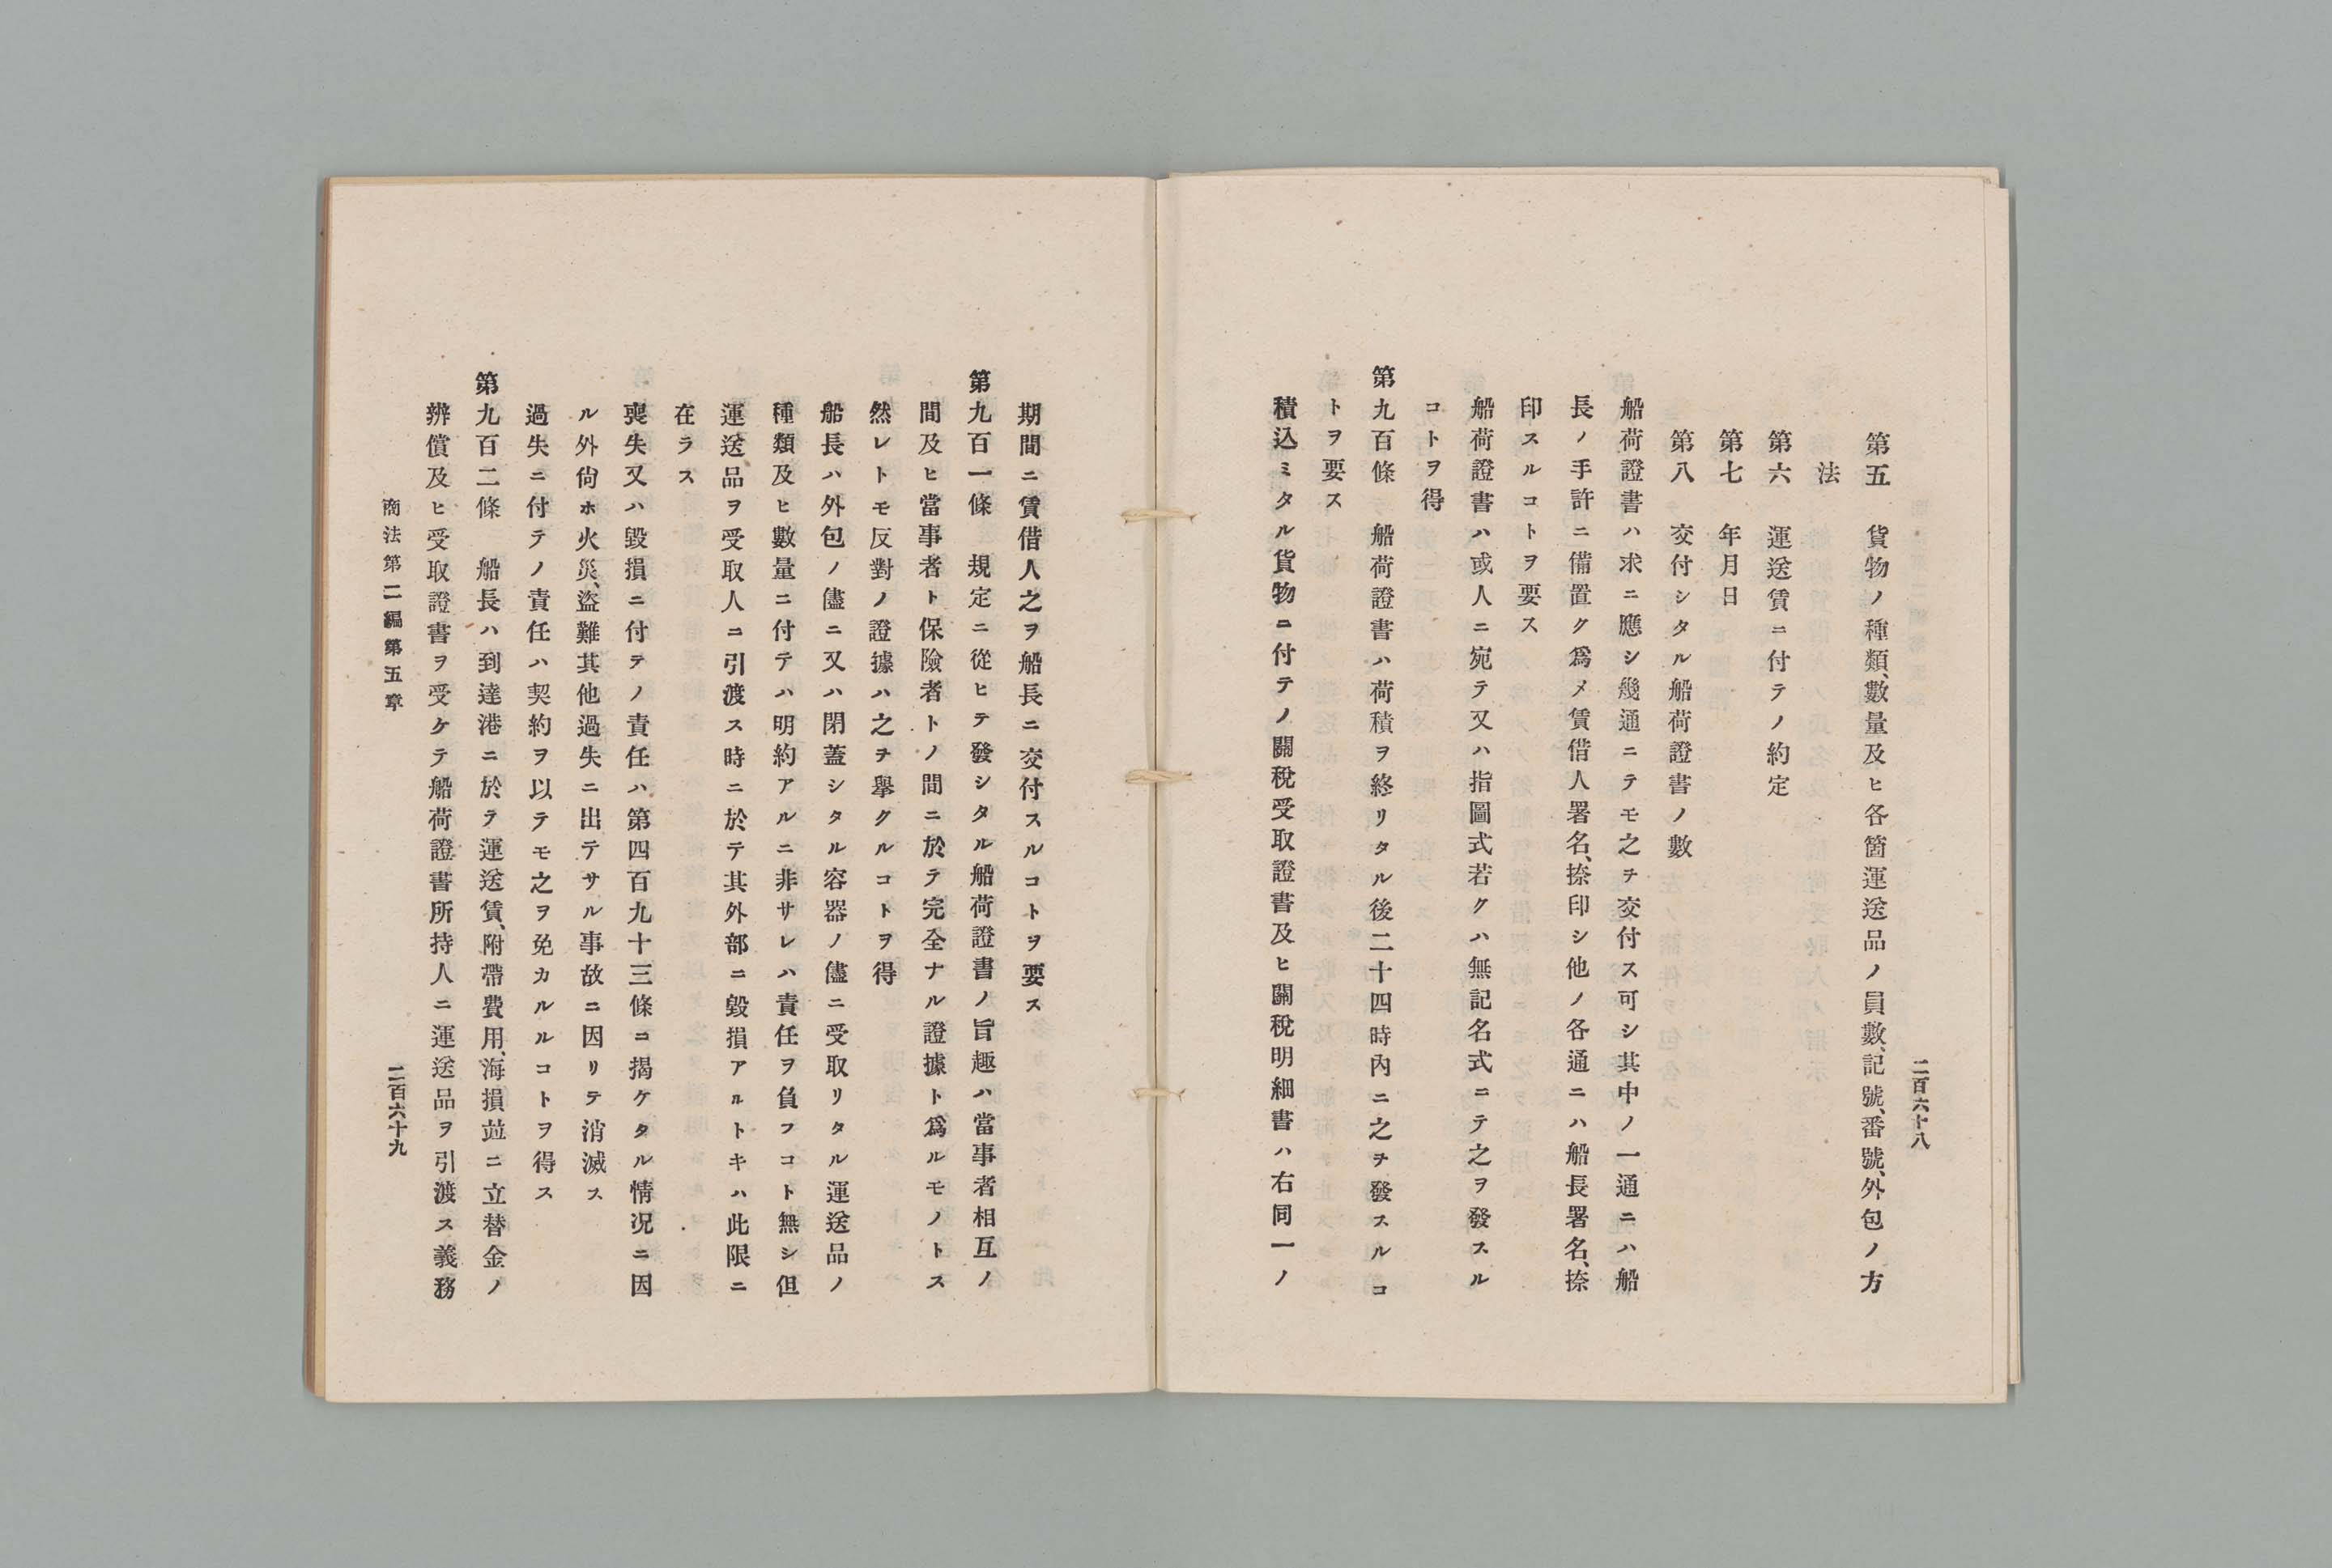 二百六十八
第五　貨物ノ種類、數量及ヒ各箇運送品ノ員數、記號、番號、外包ノ方
法
第六　運送賃ニ付テノ約定
第七　年月日
第八　交付シタル船荷證書ノ數
船荷證書ハ求ニ應シ幾通ニテモ之ヲ交付ス可シ其中ノ一通ニハ船
長ノ手許ニ備置ク爲メ賃借人署名、捺印シ他ノ各通ニハ船長署名、捺
印スルコトヲ要ス
船荷證書ハ或人ニ宛テ又ハ指圖式若クハ無記名式ニテ之ヲ發スル
コトヲ得
第九百條　船荷證書ハ荷積ヲ終リタル後二十四時內ニ之ヲ發スルコ
トヲ要ス
積込ミタル貨物ニ付テノ關稅受取證書及ヒ關稅明細書ハ右同一ノ
期間ニ賃借人之ヲ船長ニ交付スルコトヲ要ス
第九百一條　規定ニ從ヒテ發シタル船荷證書ノ旨趣ハ當事者相互ノ
間及ヒ當事者ト保險者トノ間ニ於テ完全ナル證據ト爲ルモノトス
然レトモ反對ノ證據ハ之ヲ擧クルコトヲ得
船長ハ外包ノ儘ニ又ハ閉蓋シタル容器ノ儘ニ受取リタル運送品ノ
種類及ヒ數量ニ付テハ明約アルニ非サレハ責任ヲ負フコト無シ但
運送品ヲ受取人ニ引渡ス時ニ於テ其外部ニ毀損アルトキハ此限ニ
在ラス
喪失又ハ毀損ニ付テノ責任ハ第四百九十三條ニ揭ケタル情況ニ因
ル外尙ホ火災、盜難其他過失ニ出テサル事故ニ因リテ消滅ス
過失ニ付テノ責任ハ契約ヲ以テモ之ヲ免カルルコトヲ得ス
第九百二條　船長ハ到達港ニ於テ運送賃、附帶費用、海損竝ニ立替金ノ
辨償及ヒ受取證書ヲ受ケテ船荷證書所持人ニ運送品ヲ引渡ス義務
商法第二編第五章
二百六十九